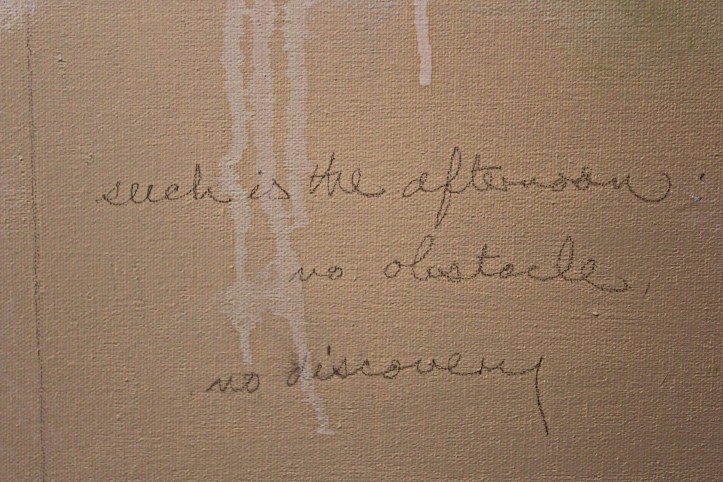 such is the afternoon :
no obstacle,
no discovery